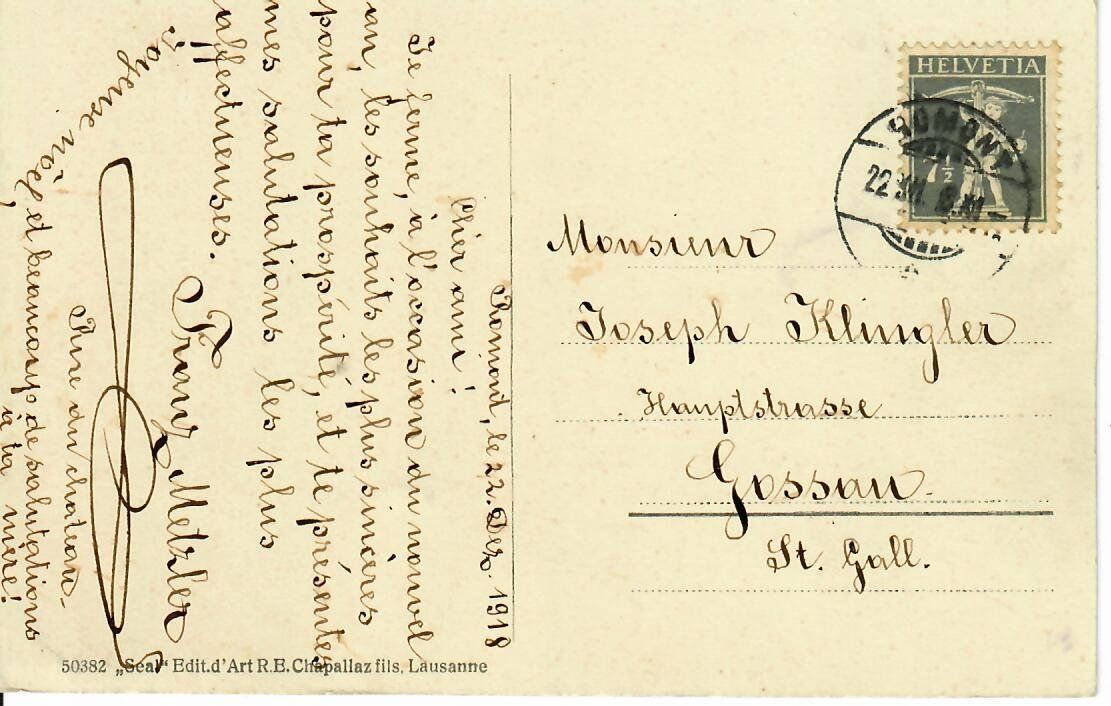 Romont, le 22. Dez. 1918
Chier ami!
Je ferme, à l'occasion du nouvel
an, les souhaits les plus sincères
pour ta prospérité, et te présentes
mes salutations les plus
affectueuses.
Franz Metzler
Rue du chateau-
Joyeuse noël, et beaucoup de salutations
à ta mère!
HELVETIA
7 1/2
ROMONT
22 XII.
Monsieur
Joseph Klingler
Hauptstrasse
Gossau.
St. Gall.
50382 „Seal“ Edit. d'Art R.E. Chapallaz fils, Lausanne